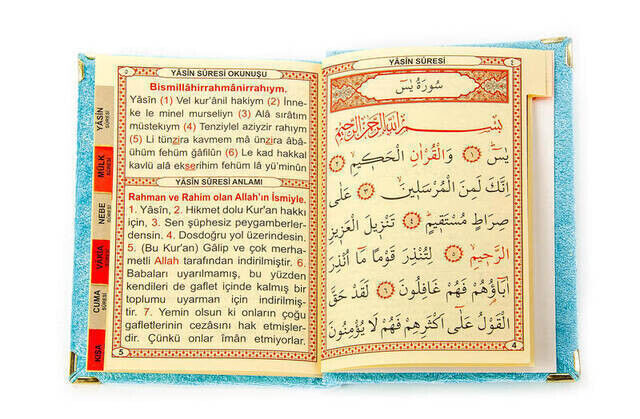 ٥ YÂSİN SÛRESİ OKUNUŞU
Bismillâhirrahmânirrahıym.
Yâsîn (1) Vel kur'ânil hakiym (2) İnne-
ke le minel murseliyn (3) Alâ sırâtım
müstekıym (4) Tenziylel aziyzir rahıym
(5) Li tünzira kavmem mâ ünzira âbâ-
ühüm fehüm ğâfilûn (6) Le kad hakkal
kavlü alâ ekserihim fehüm lâ yü'minûn
YÂSİN SÛRESİ ANLAMI
Rahman ve Rahim olan Allah'ın İsmiyle.
1. Yâsîn, 2. Hikmet dolu Kur'an hakkı
için, 3. Sen şüphesiz peygamberler-
densin. 4. Dosdoğru yol üzerindesin.
5. (Bu Kur'an) Gâlip ve çok merha-
metli Allah tarafından indirilmiştir. 6.
Babaları uyarılmamış, bu yüzden
kendileri de gaflet içinde kalmış bir
toplumu uyarman için indirilmiş-
tir. 7. Yemin olsun ki onların çoğu
gafletlerinin cezâsını hak etmişler-
dir. Çünkü onlar îmân etmiyorlar.
5
YÂSİN
SÛRESİ
MÜLK
SÛRESİ
NEBE
SÛRESİ
VAKIA
SÛRESİ
CUMA
SÛRESİ
KISA
YÂSİN SÛRESİ ٤
سُورَةُ يٰسٓ
بِسْمِ اللّٰهِ الرَّحْمٰنِ الرَّحٖيمِ
يٰسٓ ﴿١﴾ وَالْقُرْاٰنِ الْحَكٖيمِ ﴿٢﴾
اِنَّكَ لَمِنَ الْمُرْسَلٖينَ ﴿٣﴾ عَلٰى
صِرَاطٍ مُسْتَقٖيمٍ ﴿٤﴾ تَنْزٖيلَ الْعَزٖيزِ
الرَّحٖيمِ ﴿٥﴾ لِتُنْذِرَ قَوْمًا مَٓا اُنْذِرَ
اٰبَٓاؤُهُمْ فَهُمْ غَافِلُونَ ﴿٦﴾ لَقَدْ حَقَّ
الْقَوْلُ عَلٰٓى اَكْثَرِهِمْ فَهُمْ لَا يُؤْمِنُونَ
4